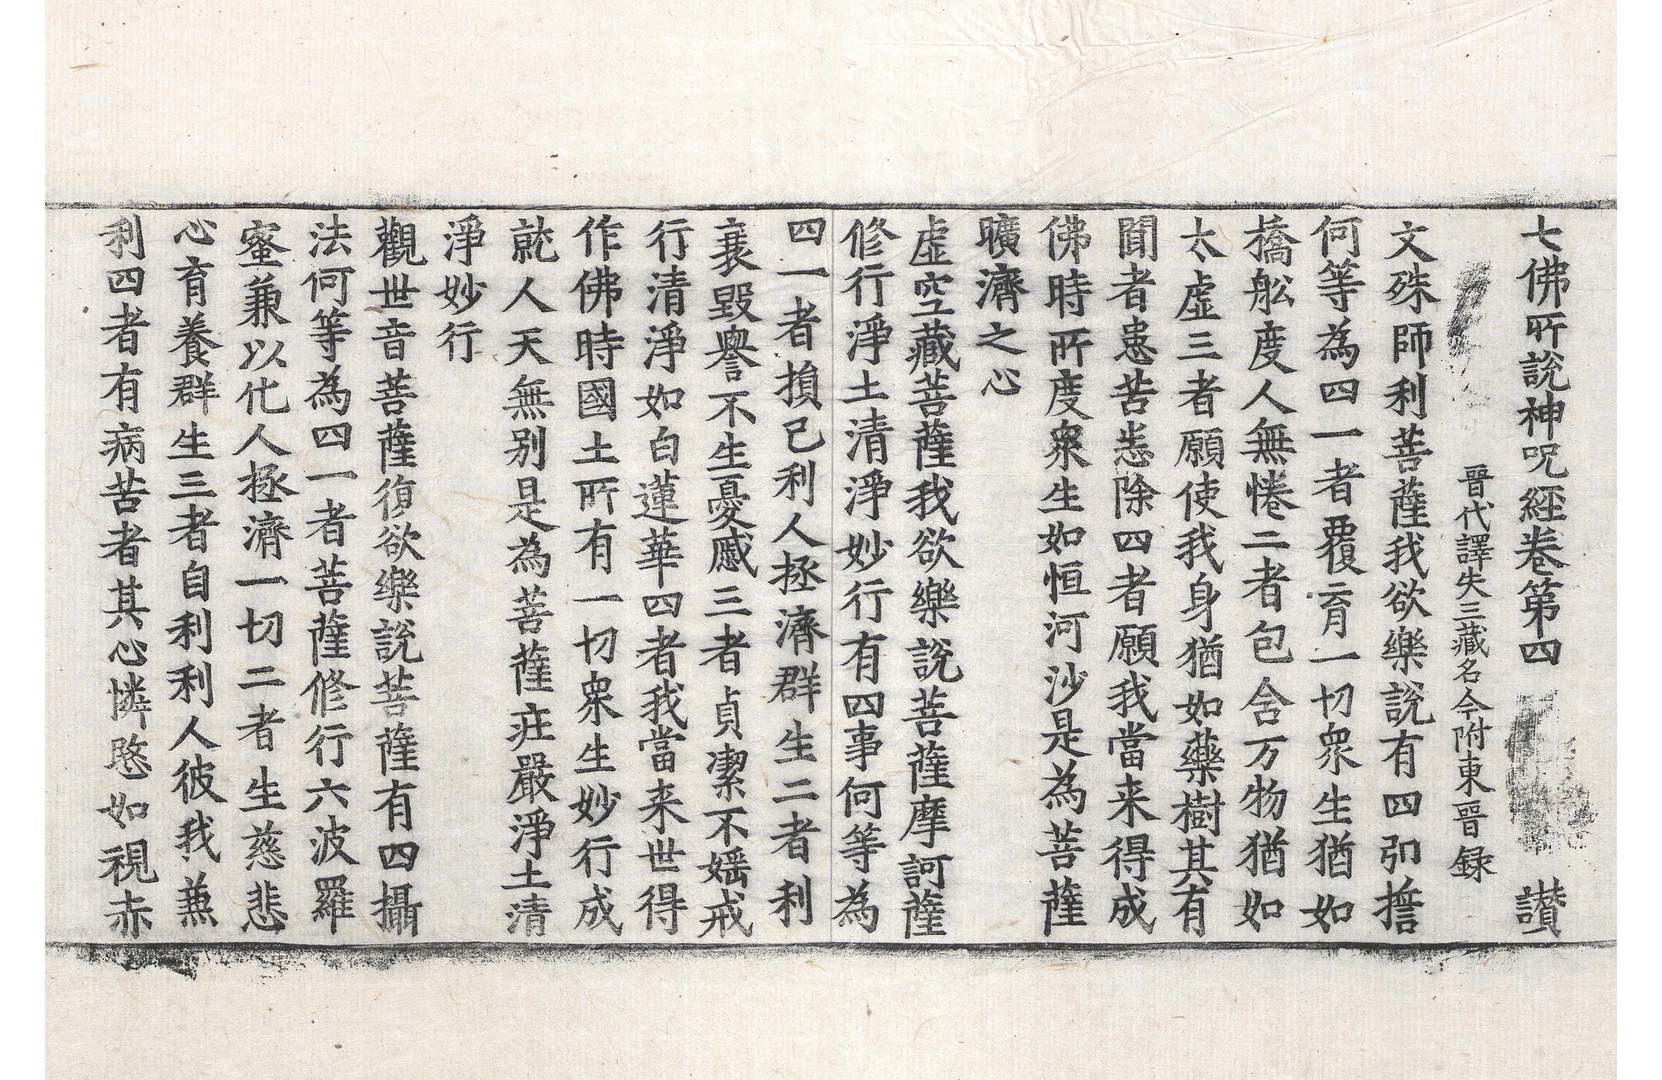 七佛所說神呪經卷第四 讃
晉代譯失三藏名今附東晉録
文殊師利菩薩我欲樂說有四弘擔
何等為四一者覆育一切衆生猶如
橋舩度人無惓二者包含万物猶如
太虛三者願使我身猶如藥樹其有
聞者患苦悉除四者願我當来得成
佛時所度衆生如恒河沙是為菩薩
曠濟之心
虛空藏菩薩我欲樂說菩薩摩訶薩
修行淨土清淨妙行有四事何等為
四一者損己利人拯濟群生二者利
衰毀譽不生憂慼三者貞潔不婬戒
行清淨如白蓮華四者我當来世得
作佛時國土所有一切衆生妙行成
就人天無別是為菩薩莊嚴淨土清
淨妙行
觀世音菩薩復欲樂說菩薩有四攝
法何等為四一者菩薩修行六波羅
蜜兼以化人拯濟一切二者生慈悲
心育養群生三者自利利人彼我兼
利四者有病苦者其心憐愍如視赤